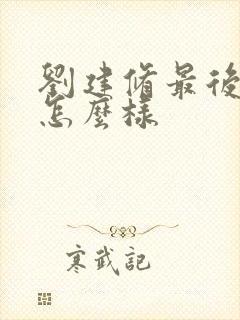 劉建脩最後
怎麼樣
寒武記